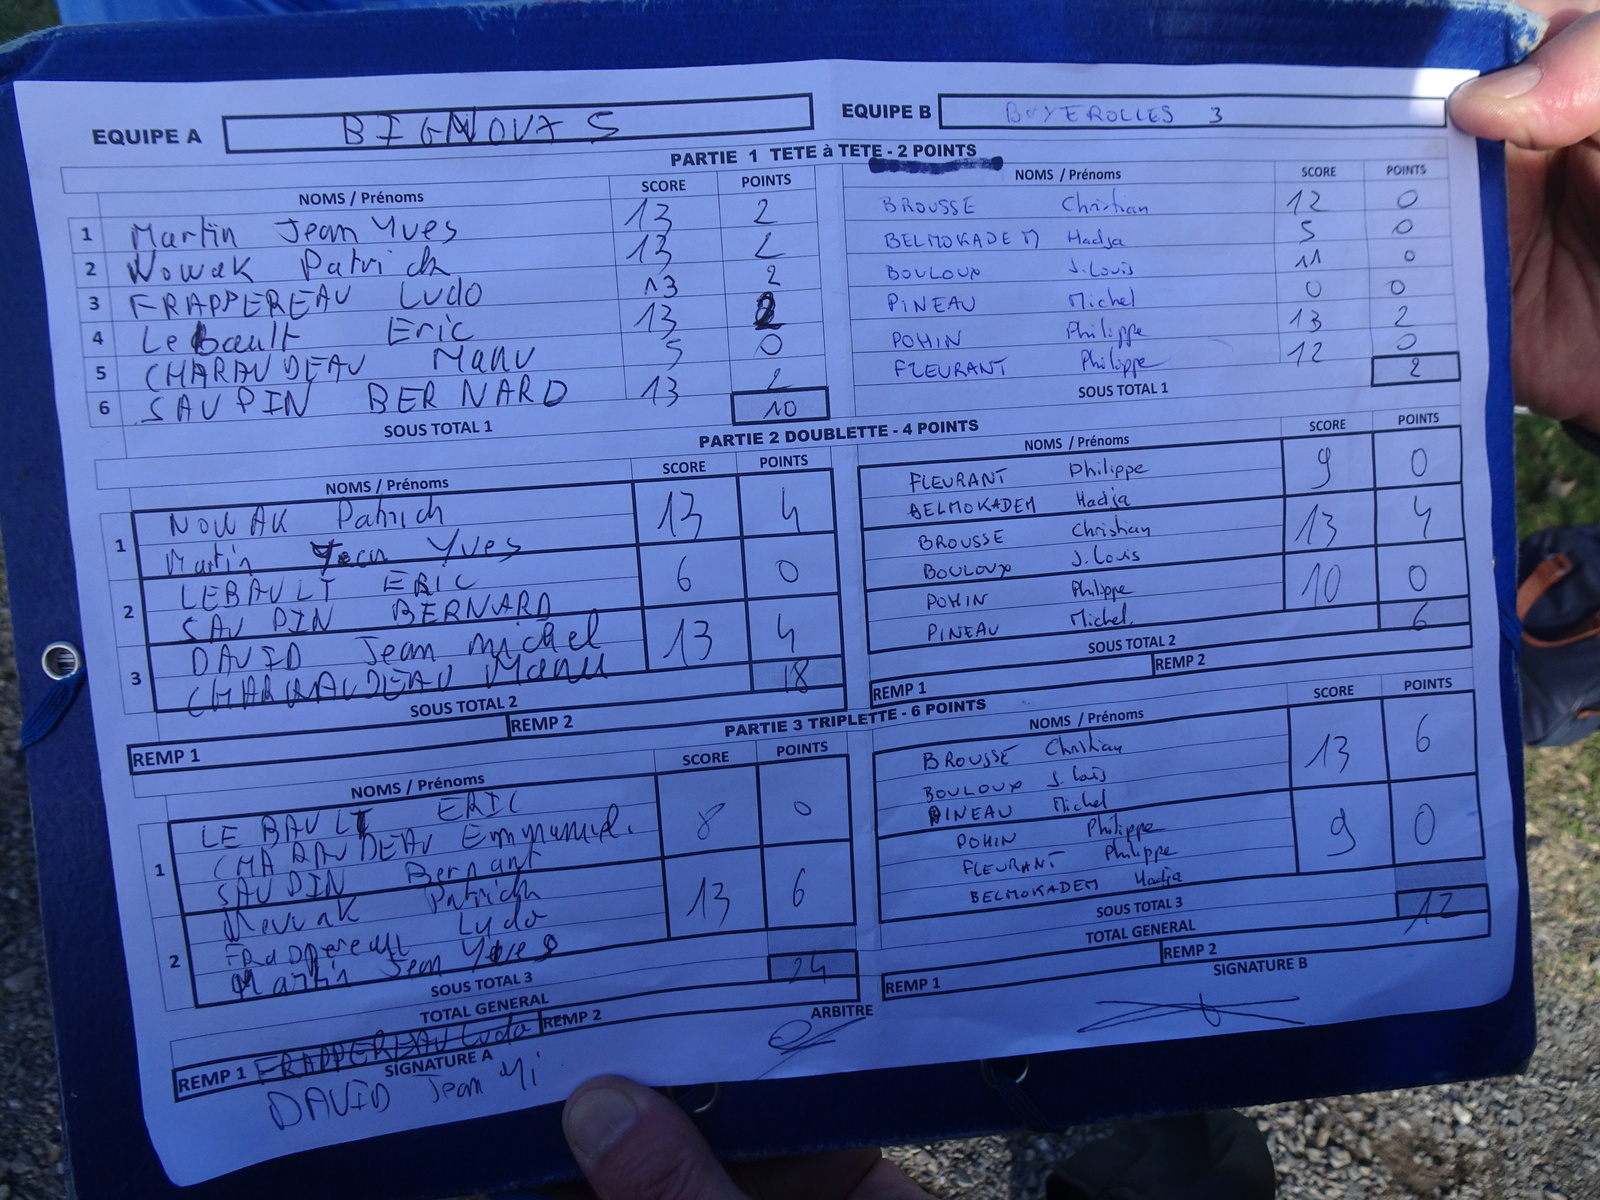 EQUIPE A BIGNOUX S EQUIPE B BUXEROLLES 3
PARTIE 1 TETE à TETE - 2 POINTS
NOMS / Prénoms SCORE POINTS NOMS / Prénoms SCORE POINTS
1 Martin Jean Yves 13 2 BROUSSE Christian 12 0
2 Nowak Patrick 13 2 BELMOKADEM Hadja 5 0
3 FRAPPEREAU Ludo 13 2 BOULOUX J.Louis 11 0
4 Le Bault Eric 13 2 PINEAU Michel 0 0
5 CHARAUDEAU Manu 5 0 POHIN Philippe 13 2
6 SAUPIN BERNARD 13 2 FLEURANT Philippe 12 0
SOUS TOTAL 1 10 SOUS TOTAL 1 2
PARTIE 2 DOUBLETTE - 4 POINTS
NOMS / Prénoms SCORE POINTS NOMS / Prénoms SCORE POINTS
1 NOWAK Patrick 13 4 FLEURANT Philippe 9 0
Martin Jean Yves BELMOKADEM Hadja
2 LEBAULT ERIC 6 0 BROUSSE Christian 13 4
SAUPIN BERNARD BOULOUX J.Louis
3 DAVID Jean michel 13 4 POHIN Philippe 10 0
Manu PINEAU Michel
SOUS TOTAL 2 18 SOUS TOTAL 2 6
REMP 1 REMP 2 REMP 1 REMP 2
PARTIE 3 TRIPLETTE - 6 POINTS
NOMS / Prénoms SCORE POINTS NOMS / Prénoms SCORE POINTS
1 LE BAULT ERIC 8 0 BROUSSE Christian 13 6
CHARAUDEAU Emmanuel. BOULOUX J.Louis
SAUPIN Bernard PINEAU Michel
2 Patrick 13 6 POHIN Philippe 9 0
Ludo FLEURANT Philippe
Martin Jean Yves BELMOKADEM Hadja
SOUS TOTAL 3 SOUS TOTAL 3
TOTAL GENERAL 24 TOTAL GENERAL 12
REMP 1 FRAPPEREAU Ludo REMP 2 REMP 1 REMP 2
SIGNATURE A ARBITRE SIGNATURE B
DAVID Jean Mi